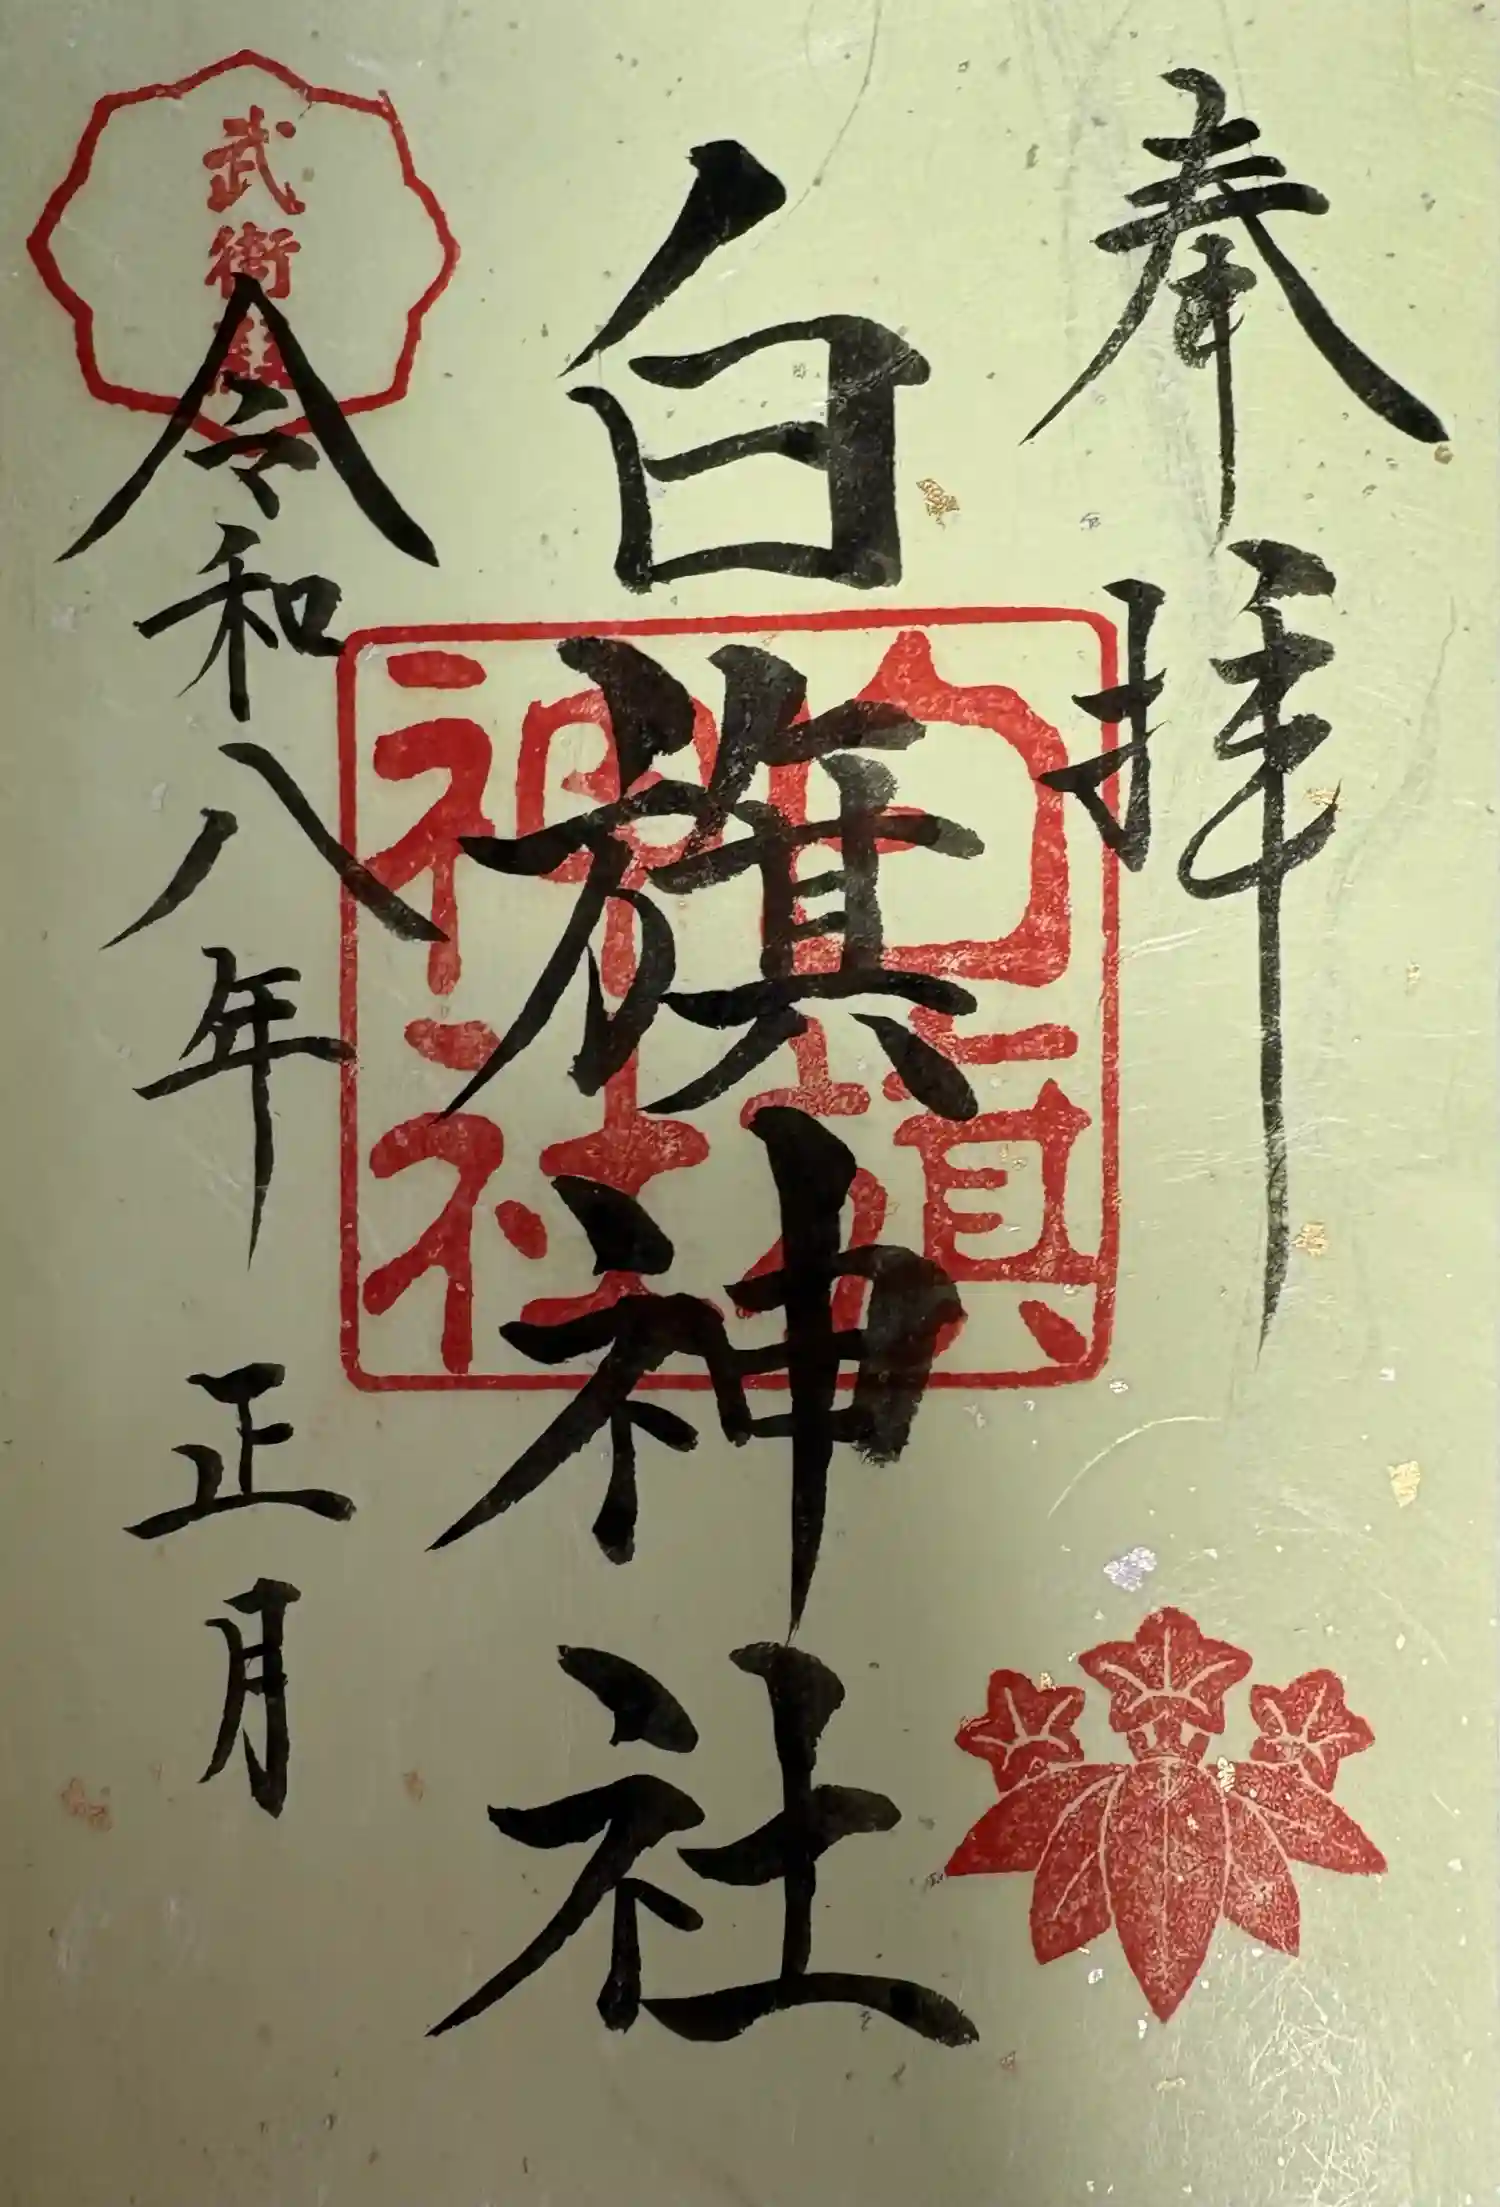 奉拝
白旗神社
白旗神社
武衛
令和八年 正月